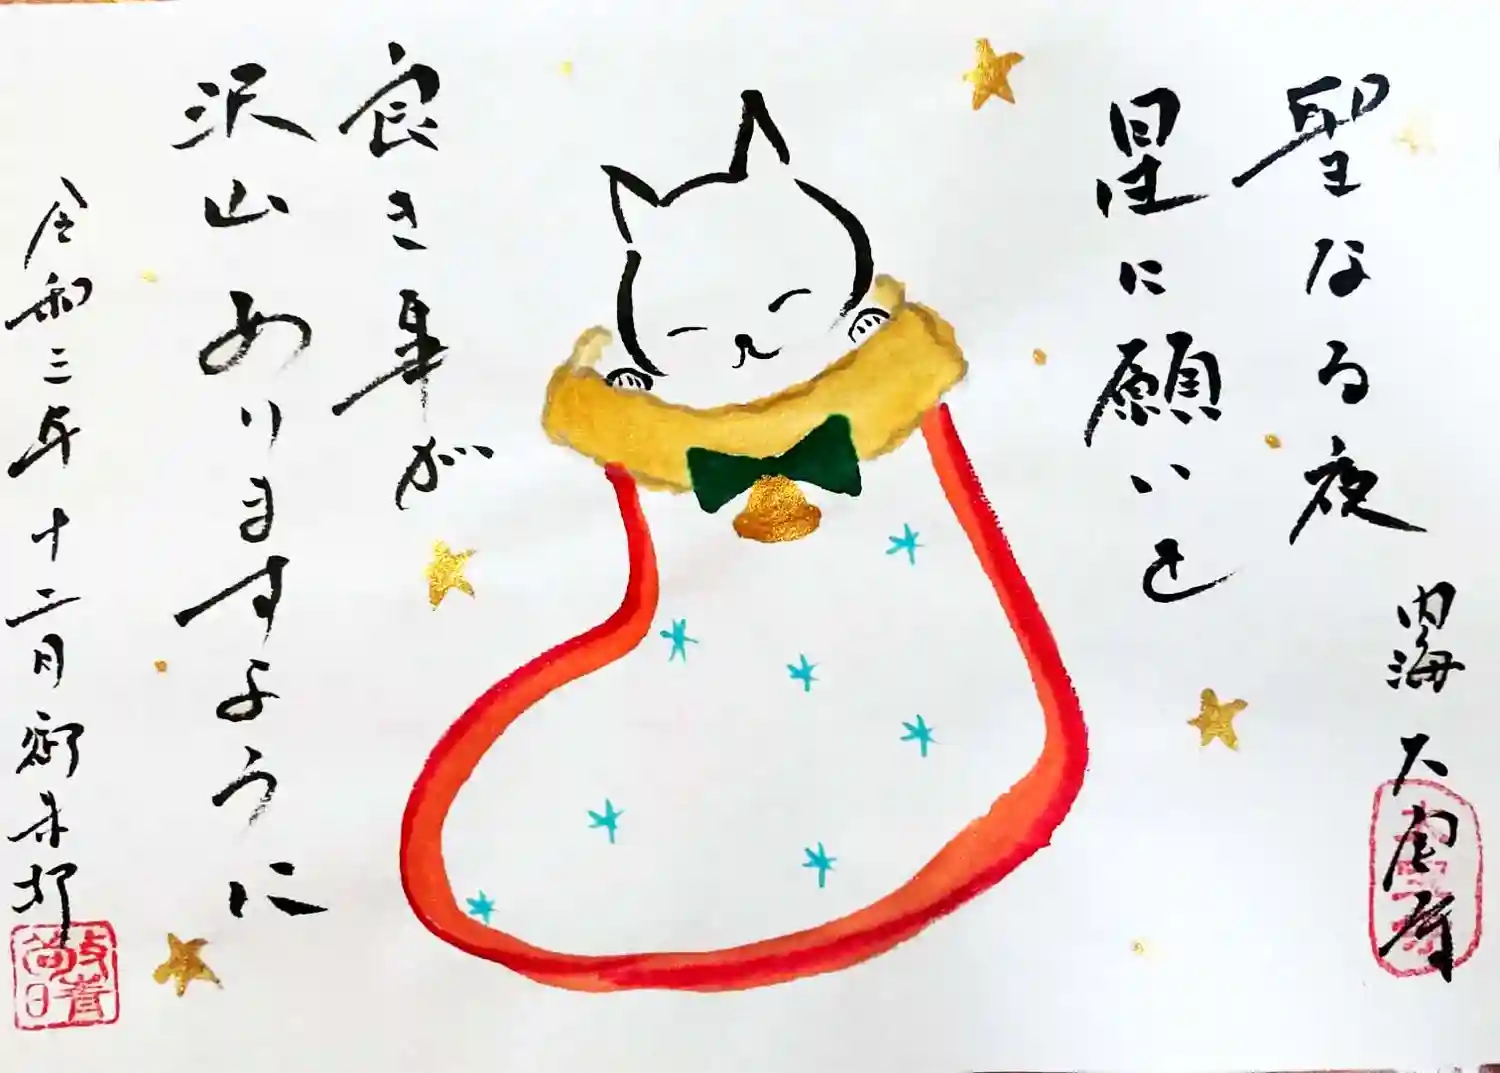 聖なる夜
星に願いを
内海 大国寺
良き事が
沢山ありますように
令和三年十二月